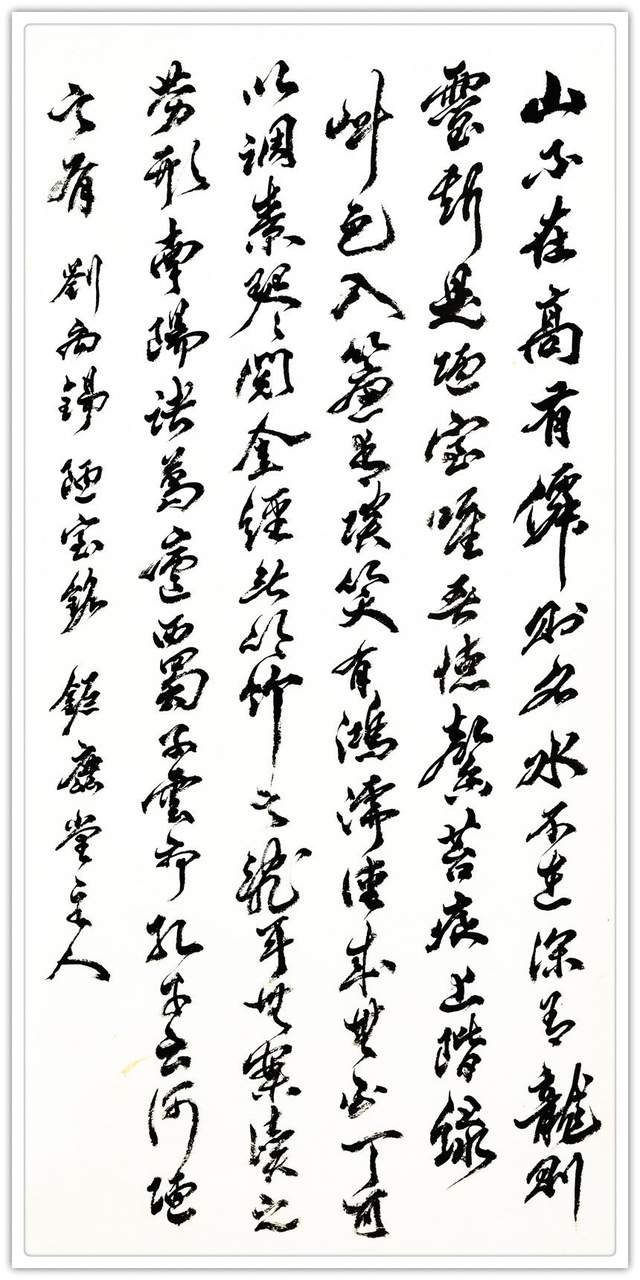 山不在高有僊則名水不在深有龍則
靈斯是陋室唯吾德馨苔痕上階綠
艸色入簾青談笑有鴻儒往來無白丁可
以調素琴閱金經无絲竹之亂耳無案牘之
勞形南陽諸葛廬西蜀子雲亭孔子云何陋
之有 劉禹錫陋室銘 堂主人